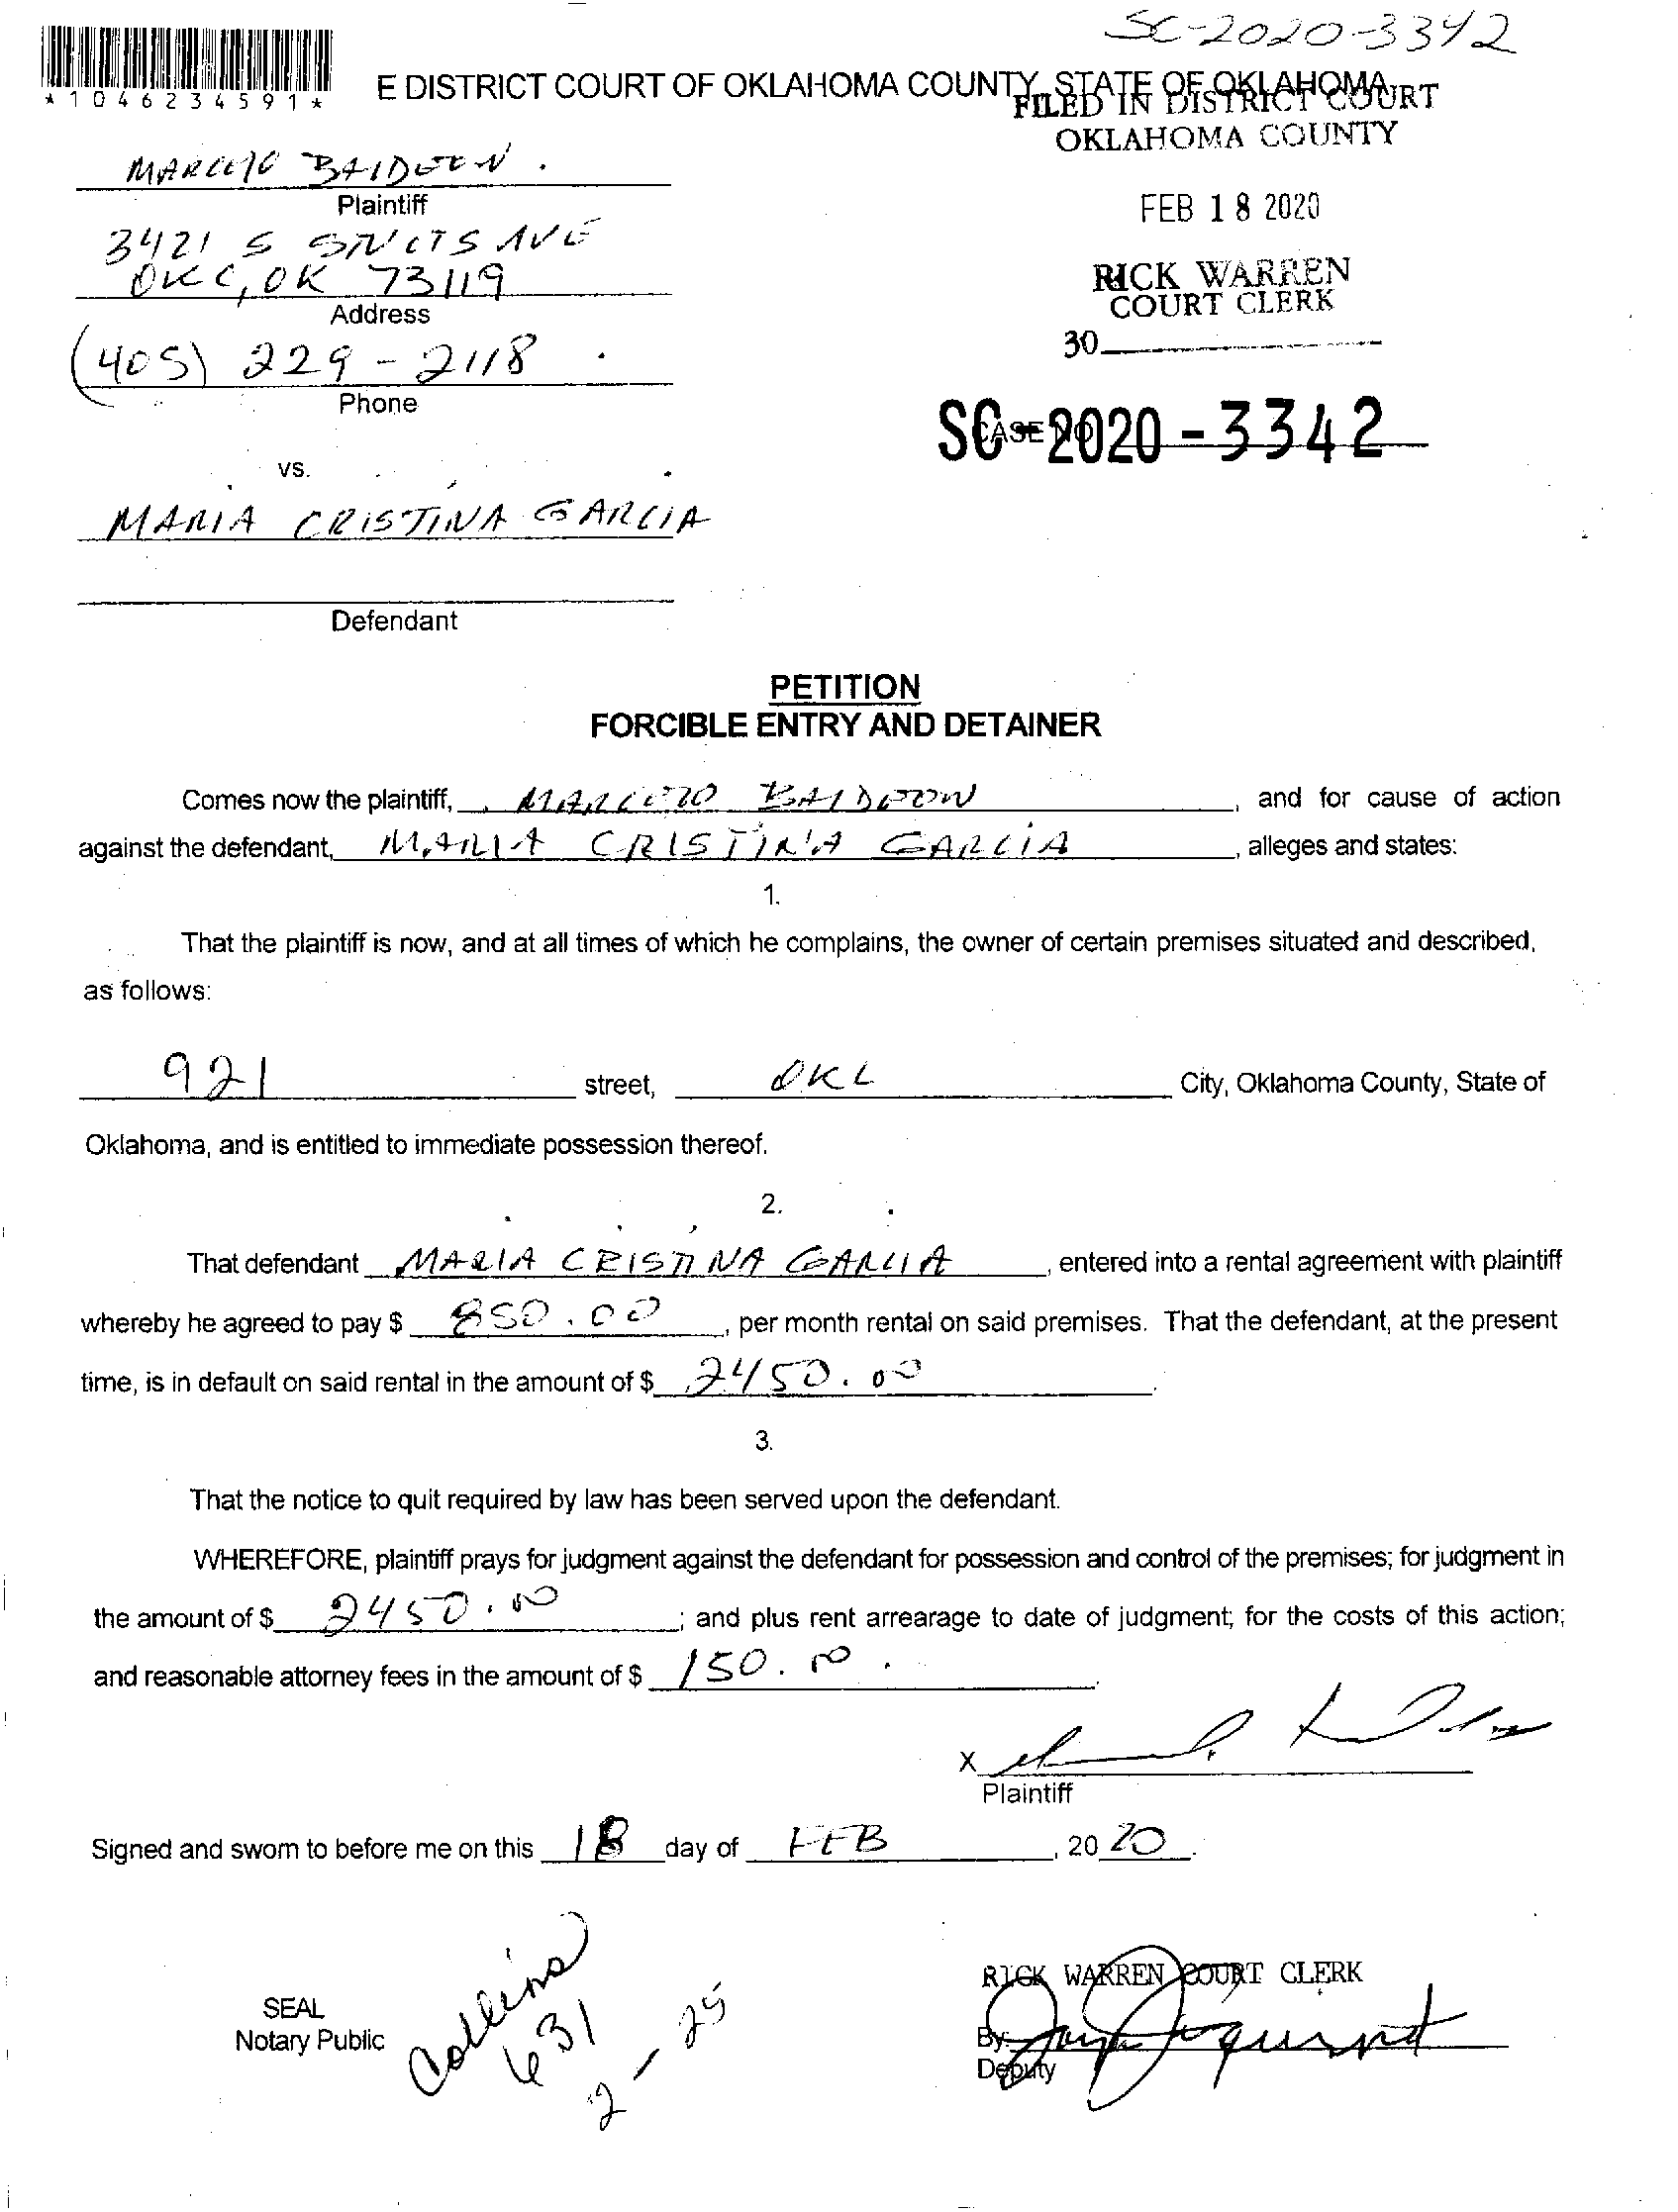 SC-2020-3342
*1046234591*
E DISTRICT COURT OF OKLAHOMA COUNTY, STATE OF OKLAHOMA
FILED IN DISTRICT COURT
OKLAHOMA COUNTY
FEB 18 2020
RICK WARREN
COURT CLERK
30
BALDEON
Plaintiff
3421 S AVE
OKC, OK 73119
Address
(405) 229-2118
Phone
CASE NO
SC-2020-3342
vs.
MARIA CRISTINA GARCIA
Defendant
PETITION
FORCIBLE ENTRY AND DETAINER
Comes now the plaintiff, BALDEON, and for cause of action
against the defendant, MARIA CRISTINA GARCIA, alleges and states:
1.
That the plaintiff is now, and at all times of which he complains, the owner of certain premises situated and described,
as follows:
921 street, City, Oklahoma County, State of
Oklahoma, and is entitled to immediate possession thereof.
2.
That defendant MARIA CRISTINA GARCIA, entered into a rental agreement with plaintiff
whereby he agreed to pay $ 850.00, per month rental on said premises. That the defendant, at the present
time, is in default on said rental in the amount of $ 2450.00.
3.
That the notice to quit required by law has been served upon the defendant.
WHEREFORE, plaintiff prays for judgment against the defendant for possession and control of the premises; for judgment in
the amount of $ 2450.00; and plus rent arrearage to date of judgment; for the costs of this action;
and reasonable attorney fees in the amount of $ 150.00.
X
Plaintiff
Signed and sworn to before me on this 18 day of FEB, 2020.
SEAL
Notary Public
Collins
631
2-25
RICK WARREN COURT CLERK
By:
Deputy